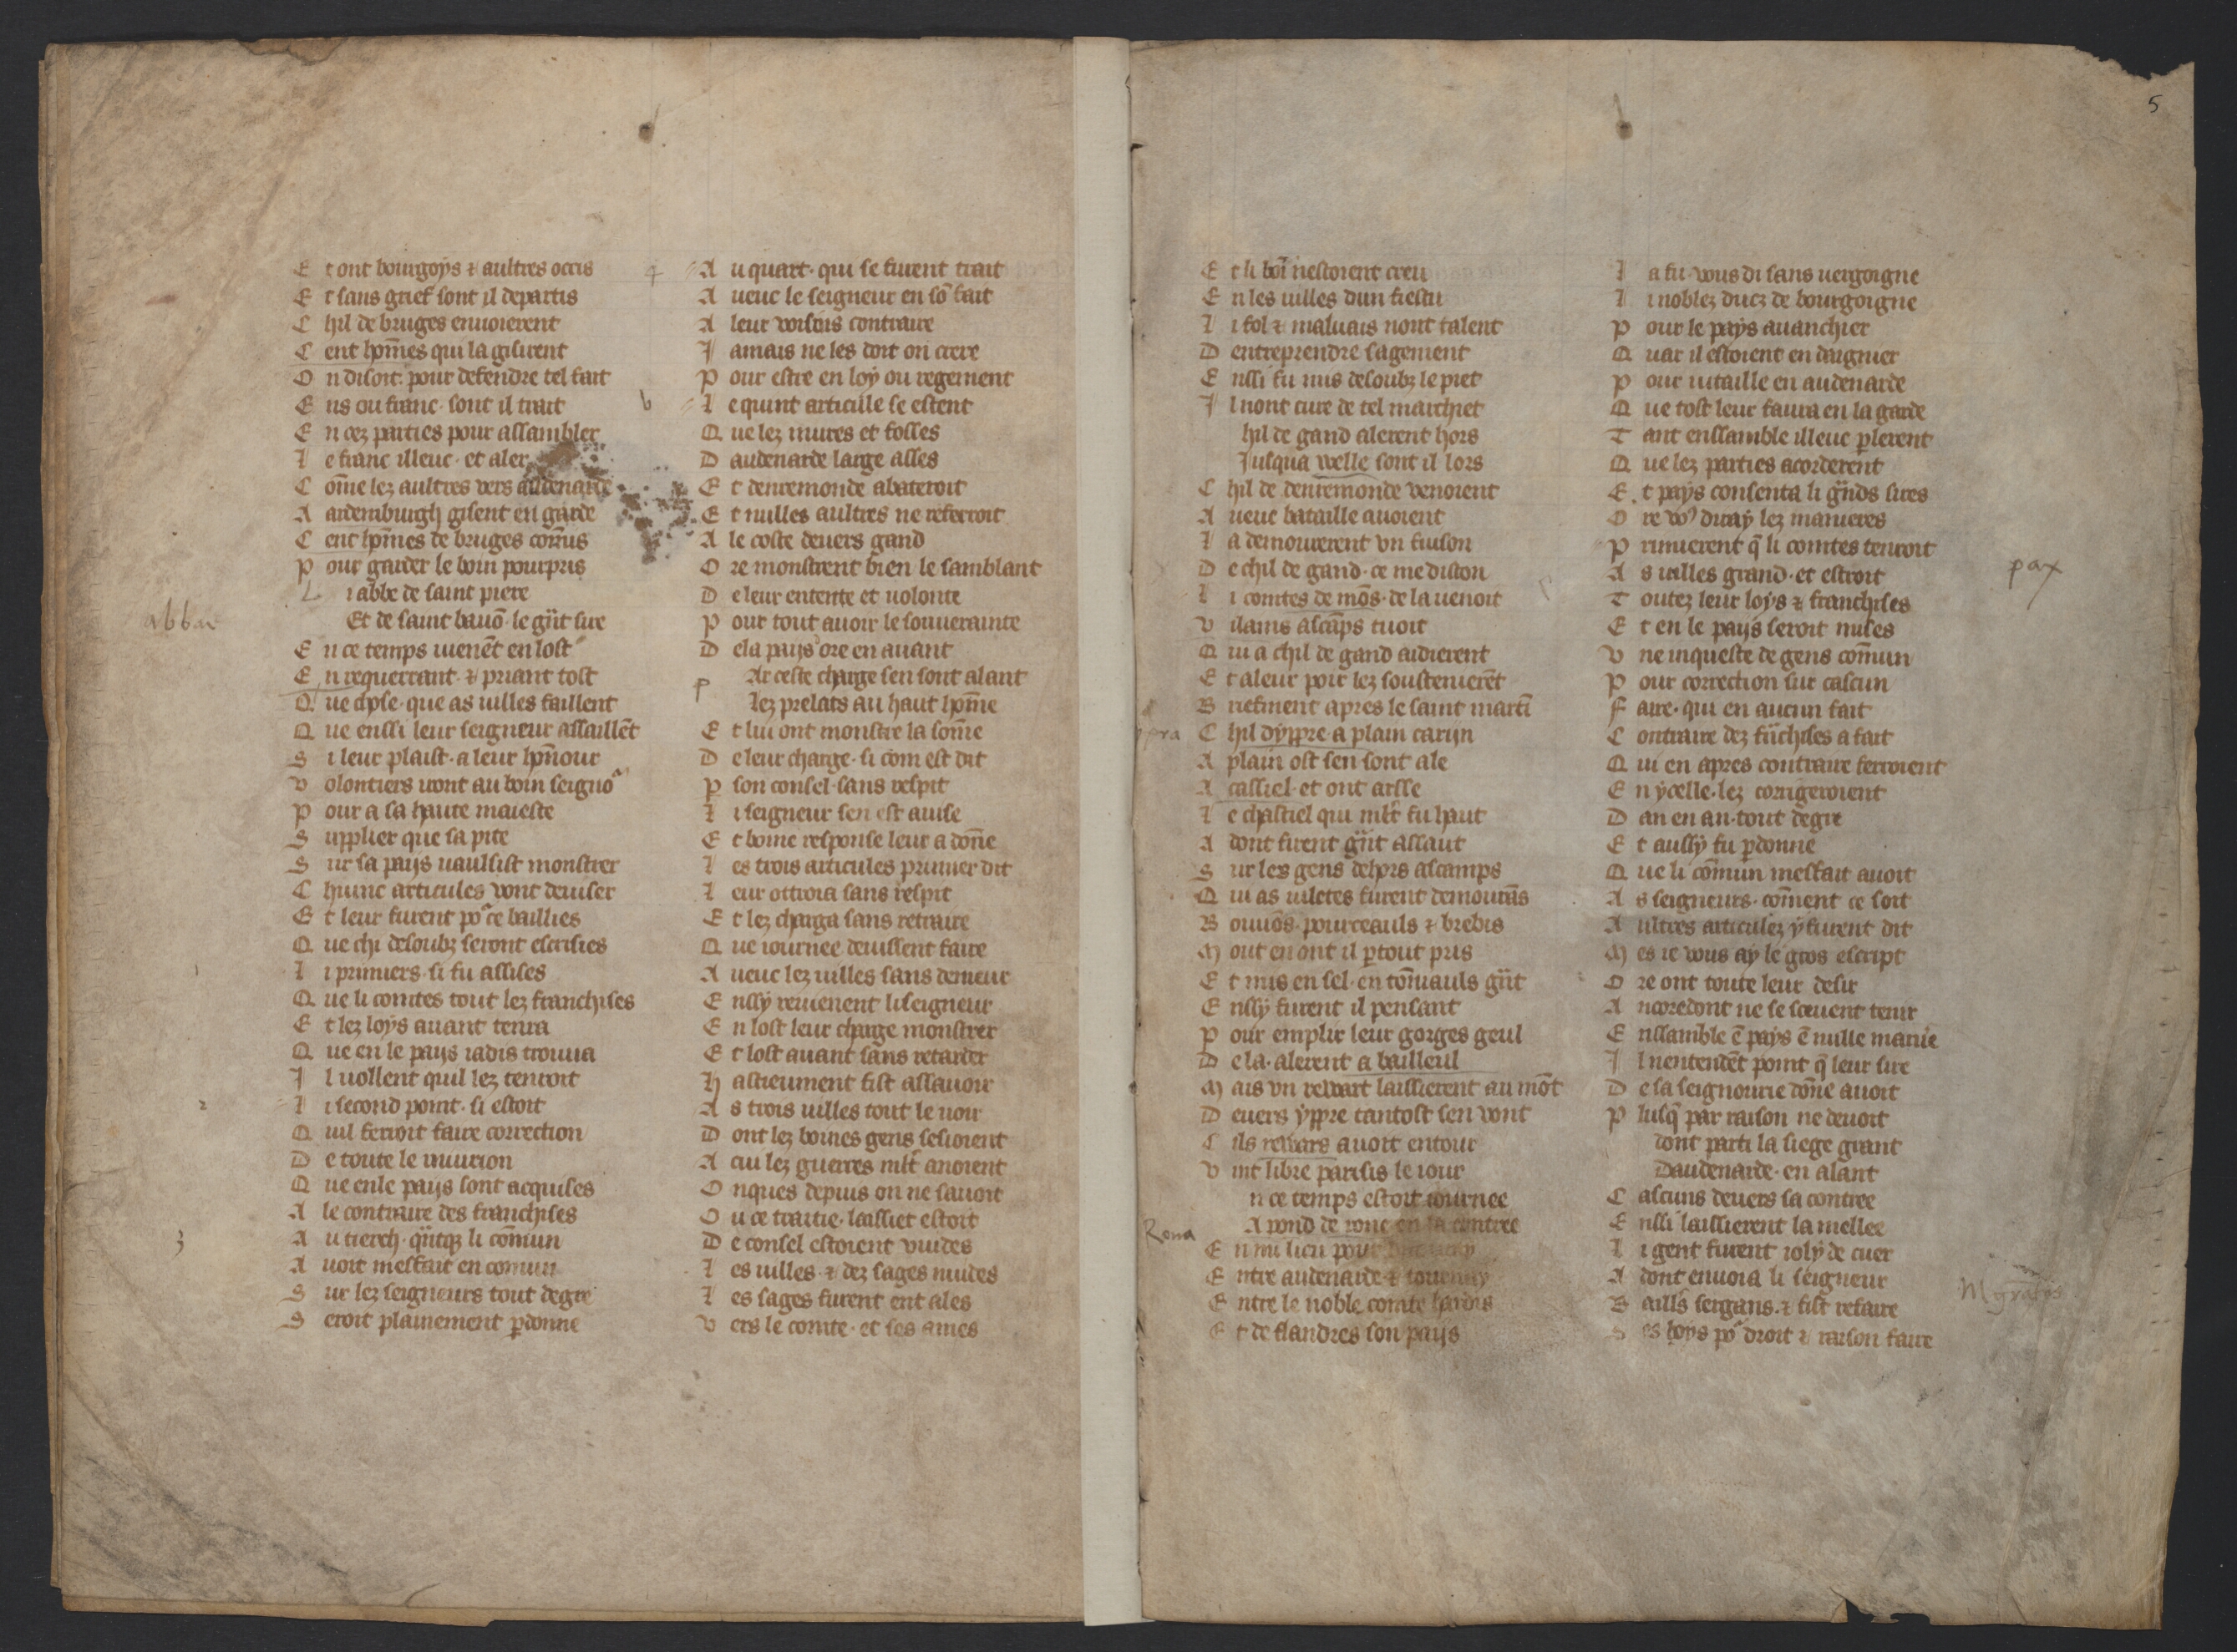 E t ont bourgoys ⁊ aultres occis
E t sans grief sont il departis
C hil de bruges enuoierent
C ent hom̄es qui la gisirent
O n disoit. pour defendre tel fait
E ns ou franc· sont il trait
E n cez parties pour assambler
L e franc illeuc· et aler
C om̄e lez aultres vers audenarde
A ardemburgh gisent en garde
C ent hom̄es de bruges com̄us
P our garder le boin pourpris
L i abbe de saint piere
Et de saint bauō· le gr̄nt sire
abbae
E n ce temps uienēt en lost
E n requerrant· ⁊ priant tost
Q ue chose· que as uilles faillent
Q ue enssi leur seigneur assaillēt
S i leur plaist· a leur hon̄our
V olontiers iront au boin seigno
P our a sa haute maieste
S upplier que sa pite
S ur sa pays uaulsist monstrer
C hiunc articules vont deuiser
E t leur furent po ce baillies
Q ue chi desoubz seront escrisies
1
L i primiers· si fu assises
Q ue li comtes tout lez franchises
E t lez loys auant tenra
Q ue en le pays iadis trouua
I l uollent quil lez tenroit
2
L i second point· si estoit
Q uil feroit faire correction
D e toute le
Q ue enle pays sont acquises
A le contraire des franchises
3
A u tierch· li com̄un
A uoit mesfait en comun
S ur lez seigneurs tout degre
S eroit plainement p̱donne
4
A u quart· qui se furent trait
A ueuc le seigneur en sō fait
A leur voisins contraire
I amais ne les doit on crere
P our estre en loy ou regement
L e quint articule se estent
Q ue lez mures et fosses
D audenarde large asses
E t denremonde abateroit
E t nulles aultres ne referroit
A le coste deuers gand
O re monstrent bien le samblant
D e leur entente et uolonte
P our tout auoir le souuerainte
D ela pays ore en auant
P Ar ceste charge sen sont alant
lez prelats au haut hom̄e
E t lui ont monstre la som̄e
D e leur charge· si com est dit
P son consel· sans respit
L i seigneur sen est auise
E t boine response leur a don̄e
L es trois articules primier dit
L eur ottroia sans respit
E t lez charga sans retraire
Q ue iournee deuissent faire
A ueuc lez uilles sans demeur
E nssy reuienent li seigneur
E n lost leur charge monstrer
E t lost auant sans retarder
H astieument fist assauoir
A s trois uilles tout le uoir
D ont lez boines gens sesioient
A cui lez guerres ml't anoient
O nques depuis on ne sauoit
O u ce traitie· laissiet estoit
D e consel estoient vuides
L es uilles· ⁊ dez sages nuides
L es sages furent ent ales
V ers le comte· et ses amies
5
E t li boī nestoient creu
E n les uilles dun festu
L i fol ⁊ maluais nont talent
D entreprendre sagement
E nssi fu mis desoubz le piet
I l nont cure de tel marchiet
hil de gand alerent hors
Jusqua welle sont il lors
C hil de denremonde venoient
A ueuc bataille auoient
L a demourerent vn fuison
D e chil de gand· ce me dist on
L i comtes de mōs· de la uenoit
V ilains ascāps tuoit
Q ui a chil de gand aidierent
E t aleur poir lez soustenierēt
B riefment apres le saint martī
C hil dyppre a plain caryn
A plain ost sen sont ale
A cassiel· et ont arsse
L e chastiel qui ml't fu haut
A dont firent gr̄nt assaut
S ur les gens dehors ascamps
Q ui as uiletes furent demourās
B ouuōs· pourceauls ⁊ brebis
M out en ont il p̱tout pris
E t mis en sel· en ton̄iauls gr̄nt
E nssy furent il pensant
P our emplir leur gorges geul
D e la· alerent a bailleul
M ais vn rewart laissierent au mōt
D euers yppre tantost sen vont
C ils rewars auoit entour
V int libre parisis le iour
n ce temps estoit iournee
Rona
A pond de rone en la contree
E n mi lieu pour
E ntre audenarde ⁊ tournay
E ntre le noble comte hardis
E t de flandres son pays
L a fu· vous di sans uergoigne
L i noblez ducz de bourgoigne
P our le pays auanchier
Q uar il estoient en daignier
P our uitaille en audenarde
Q ue tost leur faura en la garde
T ant enssamble illeuc p̱lerent
Q ue lez parties acorderent
E t pays consenta li gr̄nds sires
O re vo⁹ diray lez manieres
P rimierent q̄ li comtes tenroit
pax
A s uilles grand· et estroit
T outez leur loys ⁊ franchises
E t en le pays seroit mises
V ne inqueste de gens com̄un
P our correction sur cascun
F aire· qui en aucun fait
C ontraire dez frāchises a fait
Q ui en apres contraire ferroient
E n ycelle· lez corrigeroient
D an en an· tout degre
E t aussy fu p̱donne
Q ue li cōmun mesfait auoit
A s seigneurs· com̄ent ce soit
A ultres articulez y furent dit
M es ie vous ay le gros escript
O re ont toute leur desir
A ncoredont ne se sceuent tenir
E nssamble ē pays ē nulle manie
I l nentendēt point q̄ leur sire
D e sa seignourie dōne auoit
P lusq̄ par raison ne deuoit
dont parti la siege grant
Daudenarde· en alant
C ascuns deuers sa contree
E nssi laissierent la mellee
L i gent furent ioly de cuer
A dont enuoia li seigneur
B aills sergans· ⁊ fist refaire
S es loys po droit ⁊ raison faire